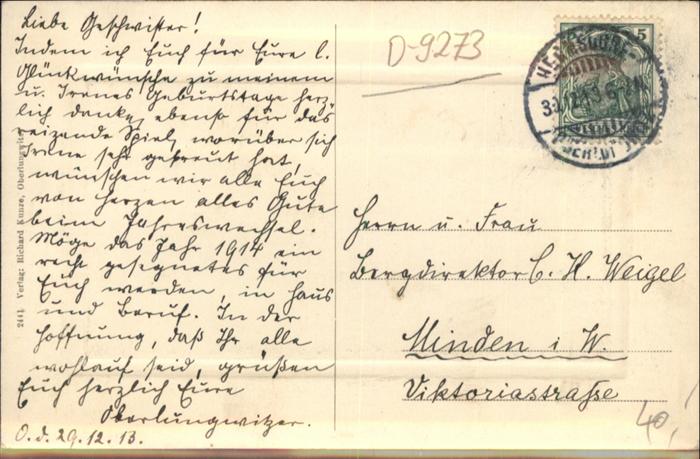 Liebe Geschwister!
Indem ich Euch für Eure l.
Glückwünsche zu meinem
u. Irenes Geburtstage herz-
lich danke, ebenso für das
reizende Spiel, worüber sich
Irene sehr gefreut hat,
wünschen wir alle Euch
von Herzen alles Gute
beim Jahreswechsel.
Möge das Jahr 1914 ein
recht gesegnetes für
Euch werden, in Haus
und Beruf. In der
Hoffnung, daß Ihr alle
wohlauf seid, grüßen
Euch herzlich Eure
Oberlungwitzer.
O. d. 29.12.13.
2441 Verlag: Richard Kunze, Oberlungwitz
D-9273
5
Herrn u. Frau
Bergdirektor C. H. Weigel
Minden i W.
Viktoriastraße
40,